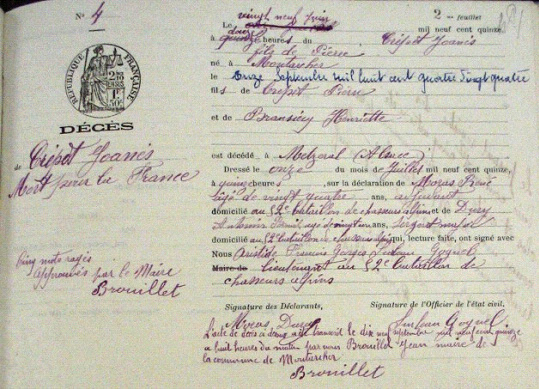 N° 4
2 - feuillet
RÉPUBLIQUE FRANÇAISE
DÉCÈS
de Crépot Joanès
Mort pour la France
Cinq mots rayés
Approuvés par le Maire
Brouillet
Le vingt neuf juin mil neuf cent quinze
à heures Crépot Joanès
fils de Pierre
né à Montusclar
le Onze Septembre mil huit cent quatre vingt quatre
fils de Crépot Pierre
et de Henriette
est décédé à Metzeral (Alsace)
Dressé le onze du mois de Juillet mil neuf cent quinze,
à heures, sur la déclaration de Moras René
âgé de vingt quatre ans, adjudant
domicilié au 52e bataillon de chasseurs alpins et de Dury
âgé de vingt ans, sergent
domicilié au 52e bataillon de chasseurs qui, lecture faite, ont signé avec
Nous Aristide Francis Georges Goguel
Maire de lieutenant au 52e bataillon de
chasseurs alpins
Signature des Déclarants,
Signature de l'Officier de l'état civil.
Moras Dury
Goguel
L'acte de décès a été transcrit le dix neuf septembre mil neuf cent quinze
à huit heures du matin par nous Brouillet Jean maire de
la commune de Montusclar
Brouillet